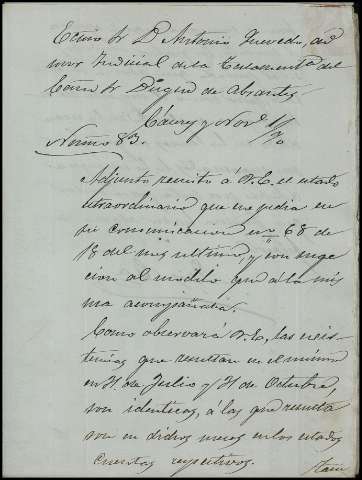 Ecmo Sr D. Antonio Quevedo, ad
mor Judicial de la Testamentª del
Ecmo Sr Duque de Abrantes
Cáceres y Nove 1/70
Numo 83.
Adjunto remito á V.E. el estado
extraordinario que me pedia en
su comunicacion no 68 de
18 del mes ultimo, y con suge
cion al modelo que á la mis
ma acompañaba.
Como observará V.E., las exis-
tencias que resultan en el mismo
en 31 de Julio y 31 de Octubre,
son identicas, á las que resulta
son en dichos meses en los estados
cuentas respectivos.